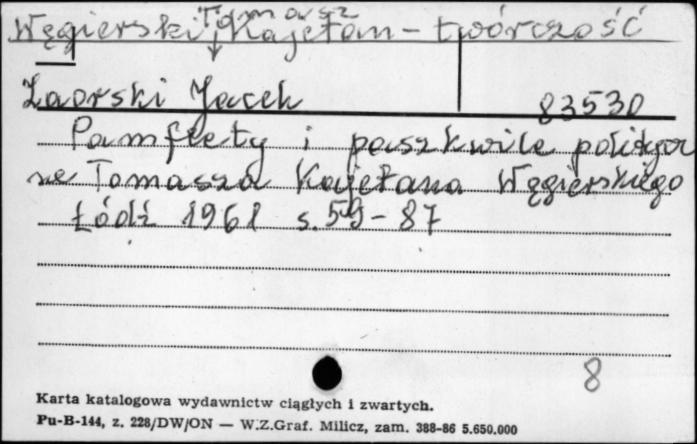 Węgierski Tomasz Kajetan - twórczość
Zaorski Jacek 83530
Pamflety i paszkwile politycz
ne Tomasza Kajetana Węgierskiego
Łódź 1961 s. 59-87
8
Karta katalogowa wydawnictw ciągłych i zwartych.
Pu-B-144, z. 228/DW/ON — W.Z.Graf. Milicz, zam. 388-86 5.650.000